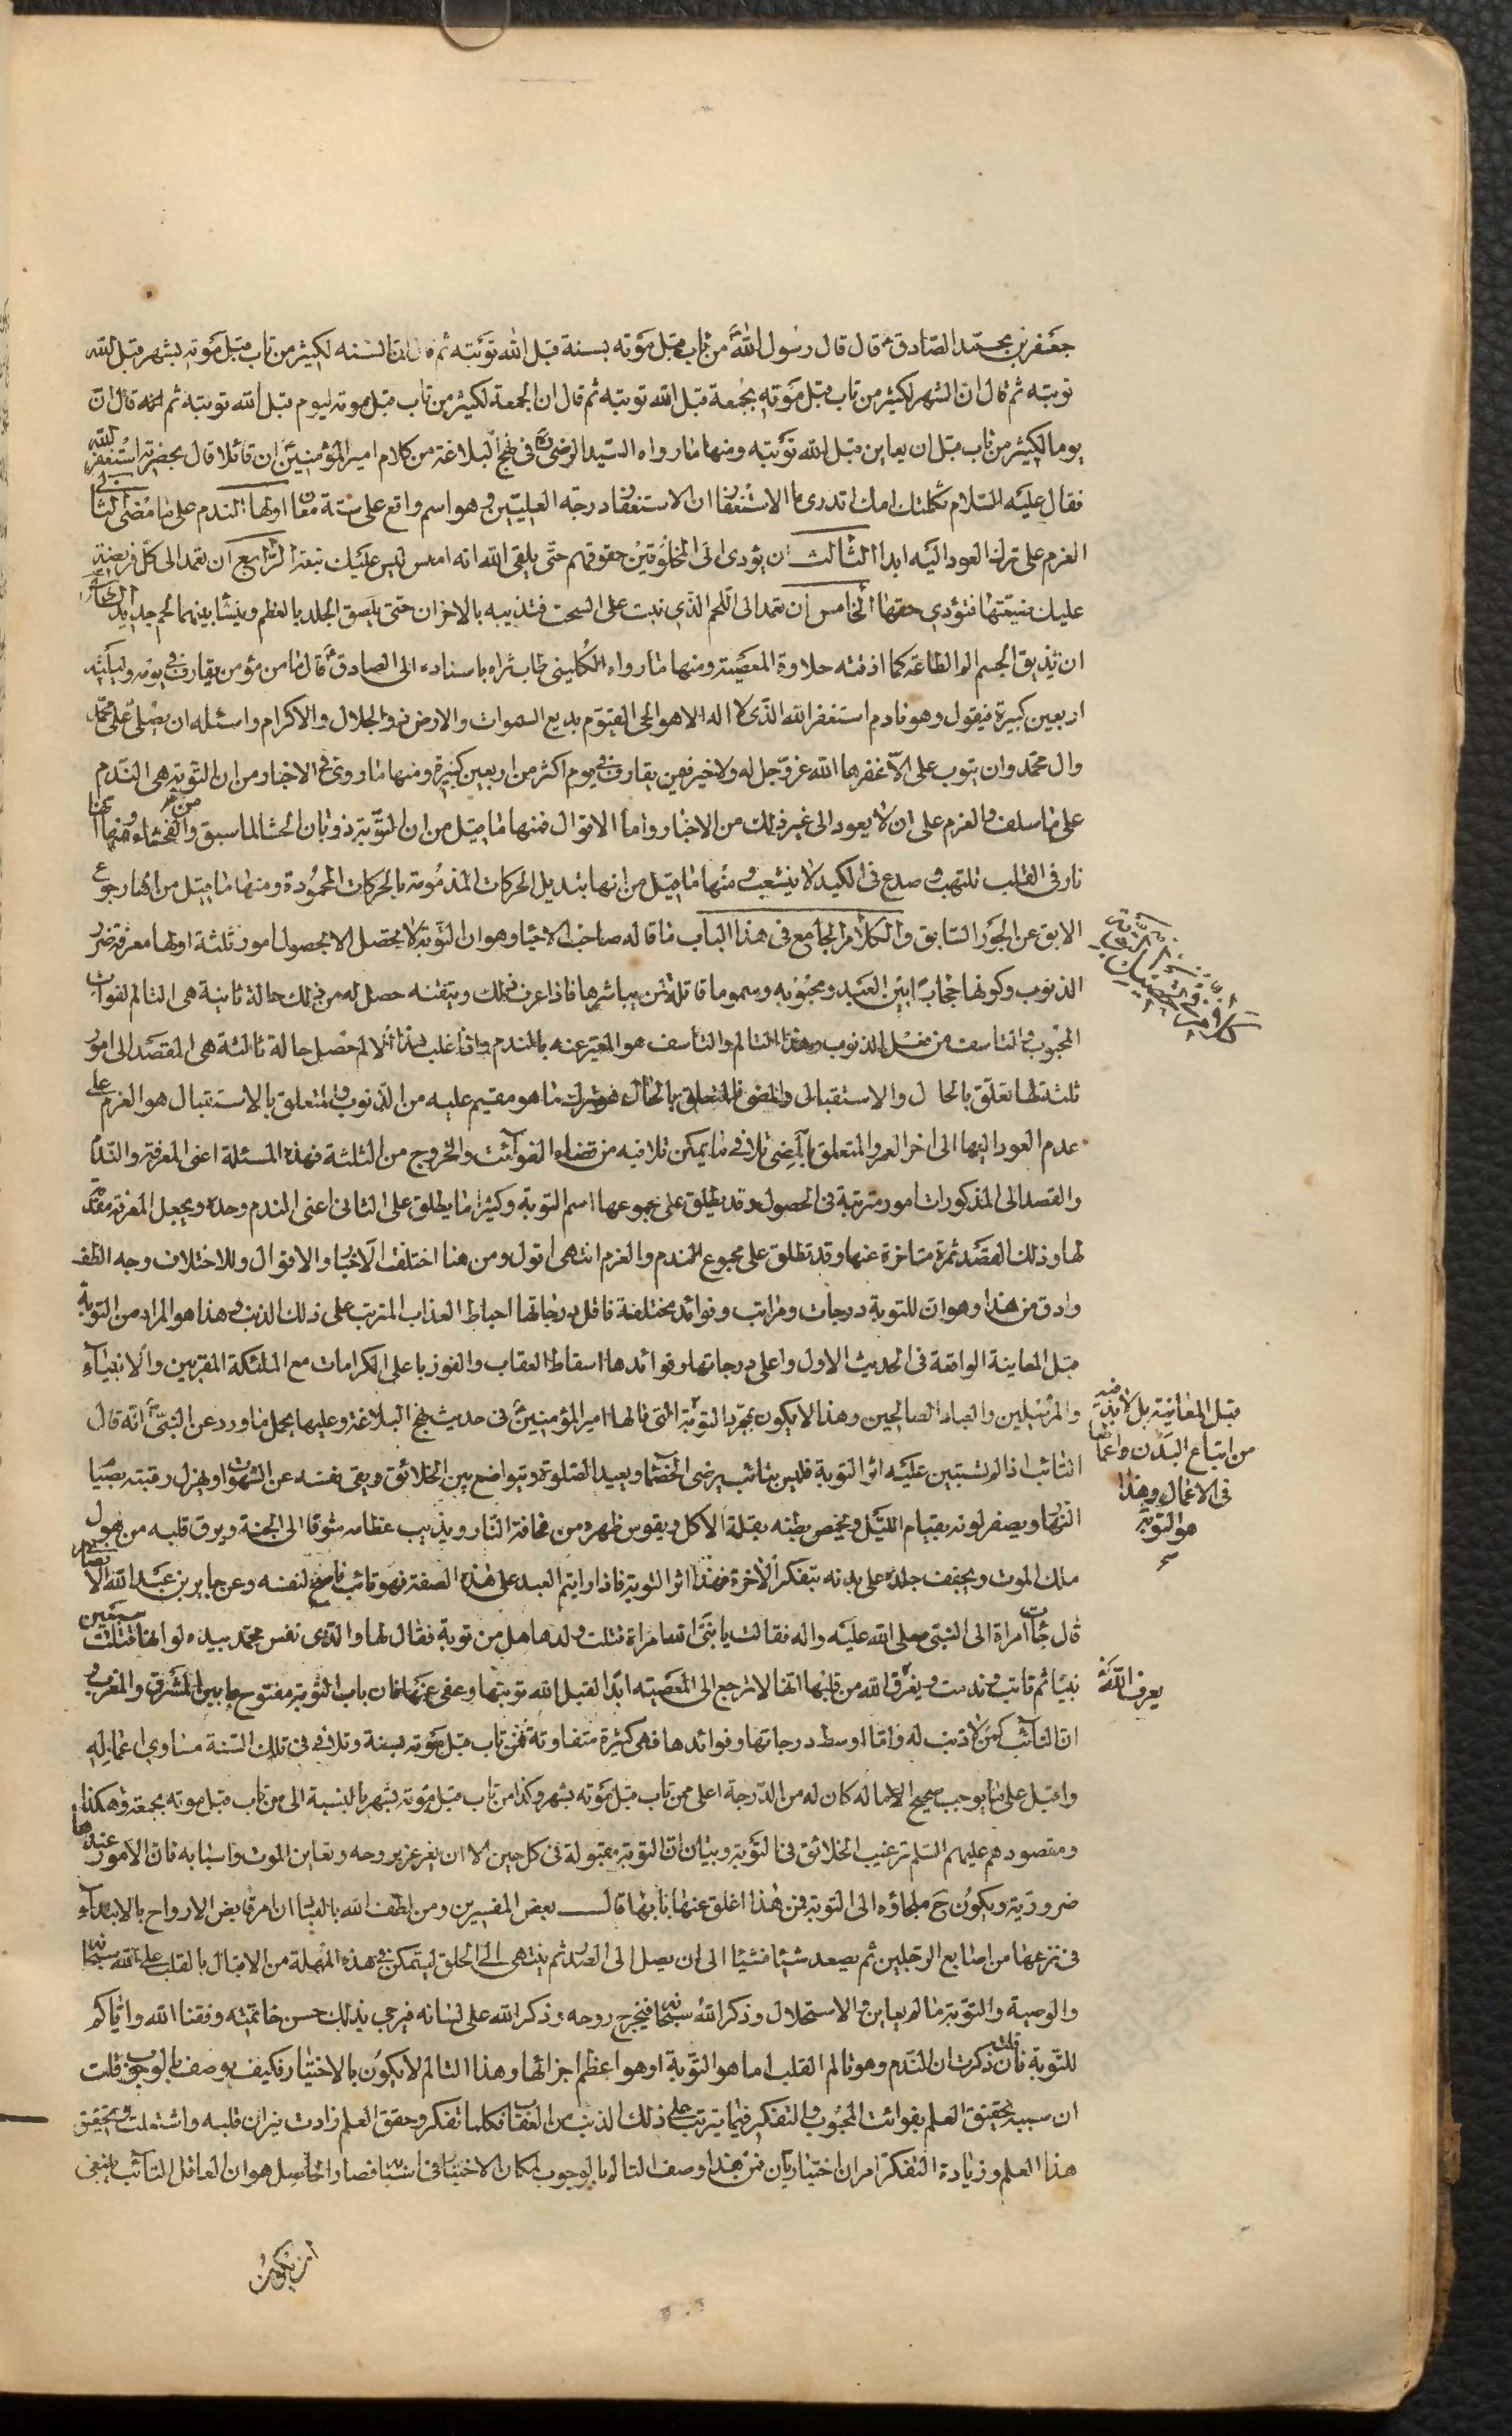 جعفر بن محمّد الصّادق ع قال قال رسول اللهّ من تاب قبل موته بسنة قبل الله توبته ثم قال ان السنه لكثير من تاب قبل موته بشهر قبل الله
توبته ثم قال ان الشهر لكثير من تاب قبل موته بجمعة قبل الله توبته ثم قال ان الجمعة لكثير من تاب قبل موته ليوم قبل الله توبته ثم قال انّ
يوما لكثير من تاب قبل ان يعاين قبل الله توبته ومنها ما رواه السّيد الرضى ره فى نهج البلاغة من كلام امير المؤمنين ان قائلا قال بحضرته استغفر الله
فقال عليه السّلام ثكلتك امك اتدرى ما الاستغفار ان الاستغفار درجة العليّين وهو اسم واقع على ستة معان اولها الندم على ما مضى الثانى
العزم على ترك العود اليه ابدا الثالث ان يؤدى الى المخلوقين حقوقهم حتّى يلقى الله انه املس ليس عليك تبعة الرّابع ان تعمد الى كل فريضة
عليك ضيّعتها فتؤدي حقها الخامس ان تعمد الى اللّحم الّذى نبت على السحت فتذيبه بالاحزان حتّى يلصق الجلد بالعظم وينشأ بينهما لحم جديد السّادس
ان تذيق الجسم الم الطاعة كما اذقته حلاوة المعصية ومنها ما رواه الكلينى طاب ثراه باسناده الى الصادق ع قال ما من مؤمن يقارف فى يومه وليلته
اربعين كبيرة فيقول وهو نادم استغفر الله الّذى لا اله الا هو الحى القيّوم بديع السموات والارض ذو الجلال والاكرام واسئله ان يصلّى على محمّد
وال محمّد وان يتوب على الّا غفرها الله عزّ وجل له ولا خير فيمن يقارف فى يوم اكثر من اربعين كبيرة ومنها ما روى فى الاخبار من ان التوبة هى النّدم
على ما سلف والعزم على ان لا يعود الى غير ذلك من الاخبار واما الاقوال فمنها ما قيل من ان التوبة ذوبان الحشا لما سبق من الفحشاء ومنها انها
نار فى القلب تلتهب وصدع فى الكبد لا ينشعب ومنها ما قيل من انها تبديل الحركات المذمومة بالحركات المحمودة ومنها ما قيل من انها رجوع
الابق عن الجور السّابق والكلام الجامع فى هذا الباب ما قاله صاحب الاحياء وهو ان التّوبة لا يحصل الا بحصول امور ثلثة اولها معرفة ضرر
الذنوب وكونها حجابا بين العبد ومحبوبه وسموما قاتلة لمن يباشرها فاذا عرف ذلك وتيقنه حصل له من ذلك حالة ثانية هى التالم لفوات
المحبوب والتاسف من فعل الذنوب وهذا التالم والتاسف هو المعبّر عنه بالندم واذا غلب هذا الالم حصل حالة ثالثة هى القصد الى امور
ثلثة لها تعلّق بالحال والاستقبال والمضى فالمتعلق بالحال هو ترك ما هو مقيم عليه من الذنوب والمتعلق بالاستقبال هو العزم على
عدم العود اليها الى اخر العمر والمتعلق بالمضى تلافى ما يمكن تلافيه من قضاء الفوائت والخروج من الثلثة فهذه المسئلة اعنى المعرفة والندم
والقصد الى المذكورات امور مترتبة فى الحصول وقد يطلق على مجموعها اسم التوبة وكثيرا ما يطلق على الثانى اعنى الندم وحده ويجعل المعرفة مقدّمة
لها وذلك القصد ثمرة متاخرة عنها وقد تطلق على مجموع الندم والعزم انتهى اقول ومن هنا اختلفت الاخبار والاقوال وللاختلاف وجه الطف
وادق من هذا وهو ان للتوبة درجات ومراتب وفوائد مختلفة فاقل درجاتها احباط العذاب المترتب على ذلك الذنب وهذا هو المراد من التوبة
قبل المعاينة الواقعة فى الحديث الاول واعلى درجاتها وفوائدها اسقاط العقاب والفوز باعلى الكرامات مع الملئكة المقربين والانبياء
والمرسلين والعباد الصالحين وهذا لا يكون بمجرّد التوبة التى قالها امير المؤمنين فى حديث نهج البلاغة وعليها يحمل ما ورد عن النبىّ انّه قال
التائب اذا لم تستبين عليه اثر التوبة فليس بتائب يرضى الخصماء ويعيد الصلوة ويتواضع بين الخلائق ويقى نفسه عن الشهوات ويهزل رقبته بصيام
النهار ويصفر لونه بقيام اللّيل ويخمص بطنه بقلة الاكل ويقوس ظهره من مخافة النّار ويذيب عظامه شوقا الى الجنة ويرق قلبه من هول
ملك الموت ويجفف جلده على بدنه بتفكر الاخرة فهذا اثر التوبة فاذا رايتم العبد على هذه الصفة فهو تائب ناصح لنفسه وعن جابر بن عبد الله الانصارى
قال جائت امراة الى النبى صلى الله عليه واله فقالت يا نبىّ الله امراة قتلت ولدها هل من توبة فقال لها والّذى نفس محمّد بيده لو انها قتلت سبعين
نبيّا ثم تابت وندمت ويعرف الله من قلبها انّها لا ترجع الى المعصية ابدا لقبل الله توبتها وعفى عنها فان باب التوبة مفتوح ما بين المشرق والمغرب و
ان التائب كمن لا ذنب له وامّا اوسط درجاتها وفوائدها فهى كثيرة متفاوتة فمن تاب قبل موته بسنة وتلافى فى تلك السّنة مساوى اعماله
واقبل على ما يوجب صحيح الاعمال كان له من الدّرجة اعلى ممن تاب قبل موته بشهر وكذا من تاب قبل موته بشهر بالنسبة الى من تاب قبل موته بجمعة وهكذا
ومقصودهم عليهم السّلم ترغيب الخلائق فى التّوبة وبيان انّ التوبة مقبولة فى كل حين الا ان يغرغر بروحه وتعاين الموت واسبابه فان الامور عندها
ضرورية ويكون ح ملجاؤه الى التوبة فمن هذا اغلق عنها بابها قال بعض المفسرين ومن لطف الله بالعباد ان امر قابض الارواح بالابتداء
فى نزعها من اصابع الرّجلين ثم يصعد شيئا فشيئا الى ان يصل الى الصدر ثم ينتهى الى الحلق ليتمكن فى هذه المهلة من الاقبال بالقلب على الله سبحانه
والوصية والتّوبة ما لم يعاين والاستحلال وذكر الله سبحانه فيخرج روحه وذكر الله على لسانه فيرجى بذلك حسن خاتمته وفقنا الله واياكم
للتّوبة فان قلت ذكرت ان النّدم وهو تالم القلب اما هو التّوبة او هو اعظم اجزائها وهذا التالم لا يكون بالاختيار فكيف يوصف بالوجوب قلت
ان سببه تحقيق العلم بفوائت المحبوب والتفكير فيما يترتب على ذلك الذنب من العقاب فكلما تفكر وحقق العلم زادت نيران قلبه واشتعلت وتحقيق
هذا العلم وزيادة التفكر امران اختياريان فمن هذا وصف التالم بالوجوب لمكان الاختيار فى اسبابه فصار الحاصل هو ان العاقل التائب ينبغى
قبل المعاينة بل لا بد فيه
من اتباع البدن واعضا
فى الاعمال وهذا
هو التوبة
يعرف اللهّ
ان يكون